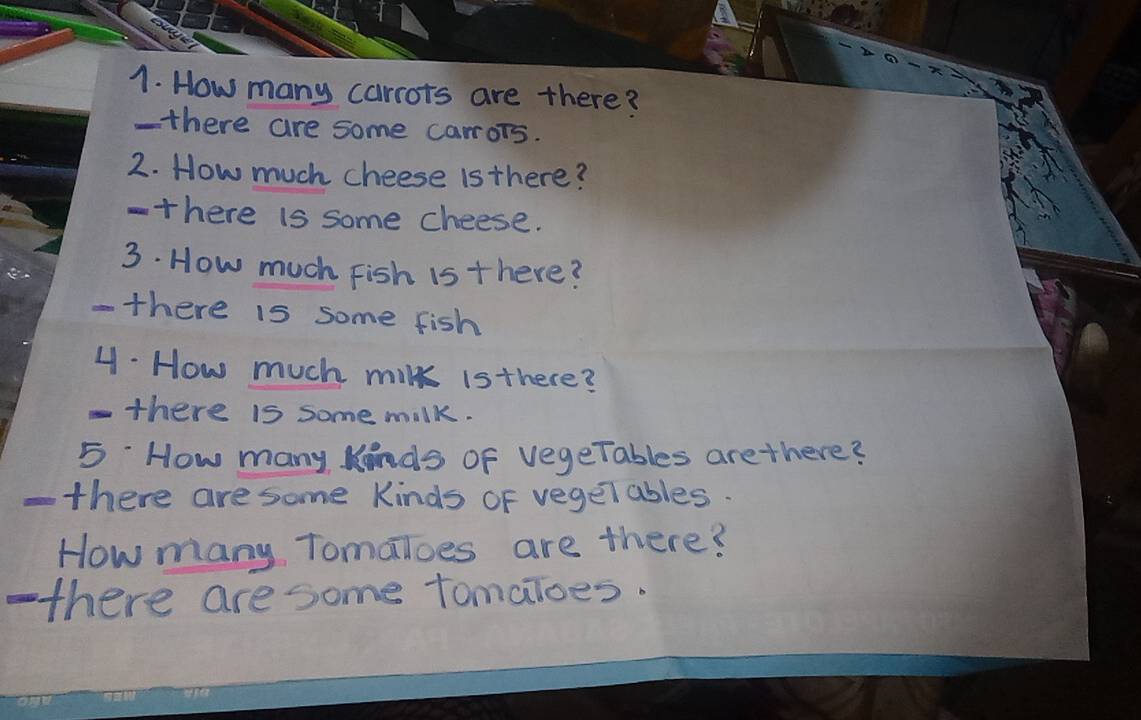 1. How many carrots are there?
- there are some carrots.
2. How much cheese is there?
- there is some cheese.
3. How much fish is there?
- there is some fish
4. How much milk is there?
- there is some milk.
5. How many Kinds of vegetables are there?
- there are some Kinds of vegetables.
How many Tomatoes are there?
- there are some tomatoes.